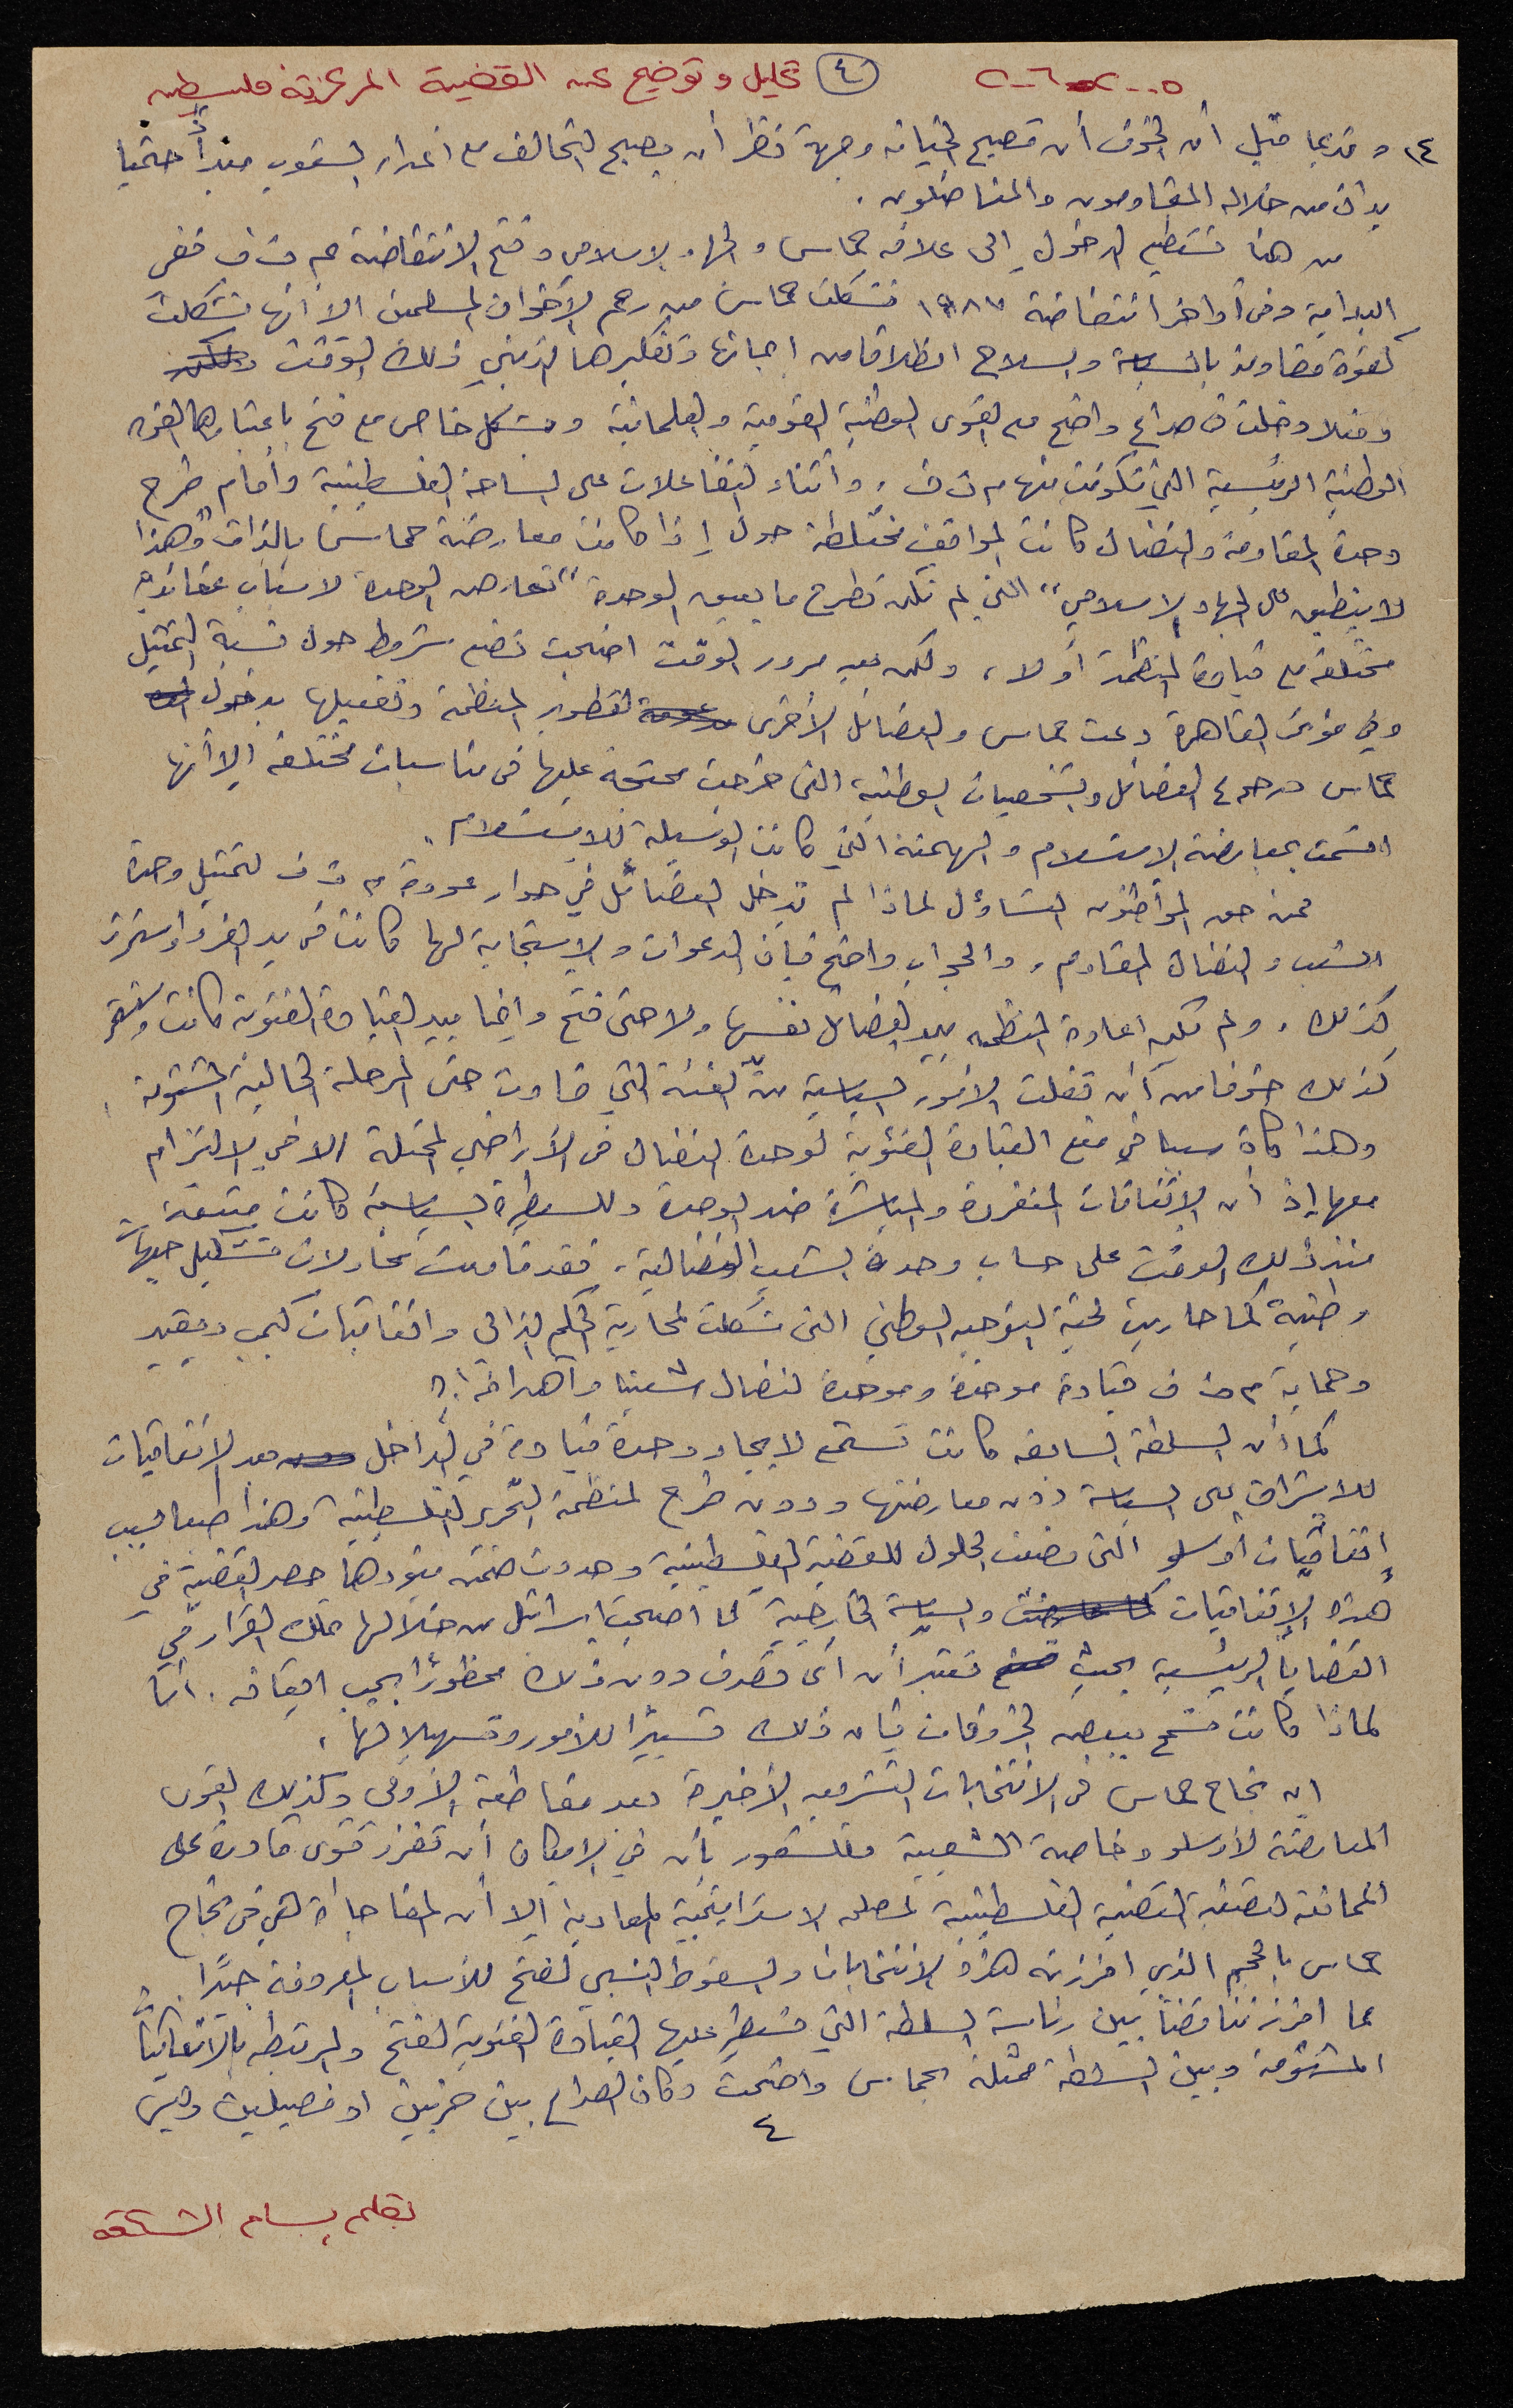 ٢٠٠٥-٢٠٠٦ ④ تحليل وتوضيح عن القضية المركزية فلسطين
١٤، وقديما قيل أن الخوف أن تصبح الخيانه وجهة نظر أن يصبح التحالف مع اعداء الشعوب مبدأً حتميا
يدان من خلاله المقاومون والمناضلون .
من هنا نستطيع الدخول إلى علاقه حماس والجهاد الاسلامي وفتح الانتفاضة م ت ف ففي
البداية وفي أواخر انتفاضة ١٩٨٧ تشكلت حماس من رحم الاخوان المسلمين الا أنها تشكلت
كقوة مقاومة بالسياسة والسلاح انطلاقا من ايمانها وتفكيرها الديني ذلك الوقت
ومثلا دخلت في صراع واضح مع القوى الوطنية القومية والعلمانية وبشكل خاص مع فتح باعتبارها القوه
الوطنية الرئيسية التي تكونت منها م ت ف ، وأثناء التفاعلات على الساحة الفلسطينية وأمام طرح
وحدة المقاومة والنضال كانت المواقف مختلطة حول إذا كانت معارضة حماس بالذات "وهذا
لا ينطبق على الجهاد الاسلامي" التي لم تكن تطرح ما يعيق الوحدة "تعارض الوحدة لاسباب عقائدية
مختلفة مع قيادة المنظمة أو لا ، ولكن بعد مرور الوقت اضحت تضع شروط حول نسبة التمثيل
وفي مؤتمر القاهرة دعت حماس والفصائل الأخرى لتطوير المنظمة وتفعيلها بدخول
حماس ورجوع الفصائل والشخصيات الوطنية التي خرجت محتجة عليها في مناسبات مختلفة إلا أنها
اتسمت بمعارضة الاستسلام والهيمنة التي كانت الوسيلة للاستسلام .
فمن حق المواطنون التساؤل لماذا لم تدخل الفصائل في حوار عودة م ت ف لتمثيل وحدة
الشعب والنضال المقاوم ، والجواب واضح فبأن الدعوات والاستجابة لها كانت في يد الفرد واستمرت
كذلك ، ولم تكن اعادة المنظمه بيد الفصائل نفسها ولا حتى فتح وإنما بيد القيادة الفئوية كانت وتستمر
كذلك خوفا من أن تفلت الأمور السياسية من الفئة التي قادت حتى المرحلة الحالية المشؤومة .
وهذا كان سببا في منع القيادة الفئوية لوحدة النضال في الأراضي المحتلة الا في الالتزام
معها إذ أن الاتفاقات المنفردة والمباشرة ضد الوحدة وللسيطرة السياسية كانت متبعة
منذ ذلك الوقت على حساب وحدة الشعب النضالية ، فقد قاومت محاولات تشكيل جبهات
وطنية كما حاربت لجنة التوجيه الوطني التي شكلت لمحاربة الحكم الذاتي واتفاقيات كمب ديفيد
وحماية م ت ف قيادة موحدة وموحدة لنضال شعبنا وأهدافه !؟
كما أن السلطة السابقه كانت تسمح لايجاد وحدة قيادة في الداخل بعد الاتفاقيات
للاشراف على السياسة دون معارضتها ودون طرح لمنظمة التحرير الفلسطينية وهذا طبعا بسبب
إتفاقيات أوسلو التي وضعت الحلول للقضية الفلسطينية وحددت ضمن قيودها حصر القضية في
هذه الاتفاقيات والسياسة الخارجية كما اصبحت اسرائيل من خلالها تملك القرار في
القضايا الرئيسية بحيث تعتبر أن اى تصرف دون ذلك محظوراً يجب ايقافه . أما
لماذا كانت تسمح ببعض الخروقات فبأن ذلك تسييرا للأمور وتسهيلا لها ،
ان نجاح حماس في الانتخابات التشريعيه الأخيرة بعد مقاطعة الأولى وكذلك القوى
المعارضة لأوسلو وخاصة الشعبية فللشعور بأن في الامكان أن تفرز قوى قادرة على
الممانعة لتصفية القضية الفلسطينية لمصلحه الاستراتيجية المعادية إلا أن المفاجأة هي في نجاح
حماس بالحجم الذي افرزته هذه الانتخابات والسقوط النسبي لفتح للأسباب المعروفة جيداً .
مما افرز تناقضاً بين رئاسة السلطة التي تسيطر عليها القيادة الفئوية لفتح والمرتبطه بالاتفاقيات
المشؤومة وبين السلطة ممثلة بحماس واضحت وكأن الصراع بين حزبين او فصيلين وليس
٤
بقلم بسام الشكعه